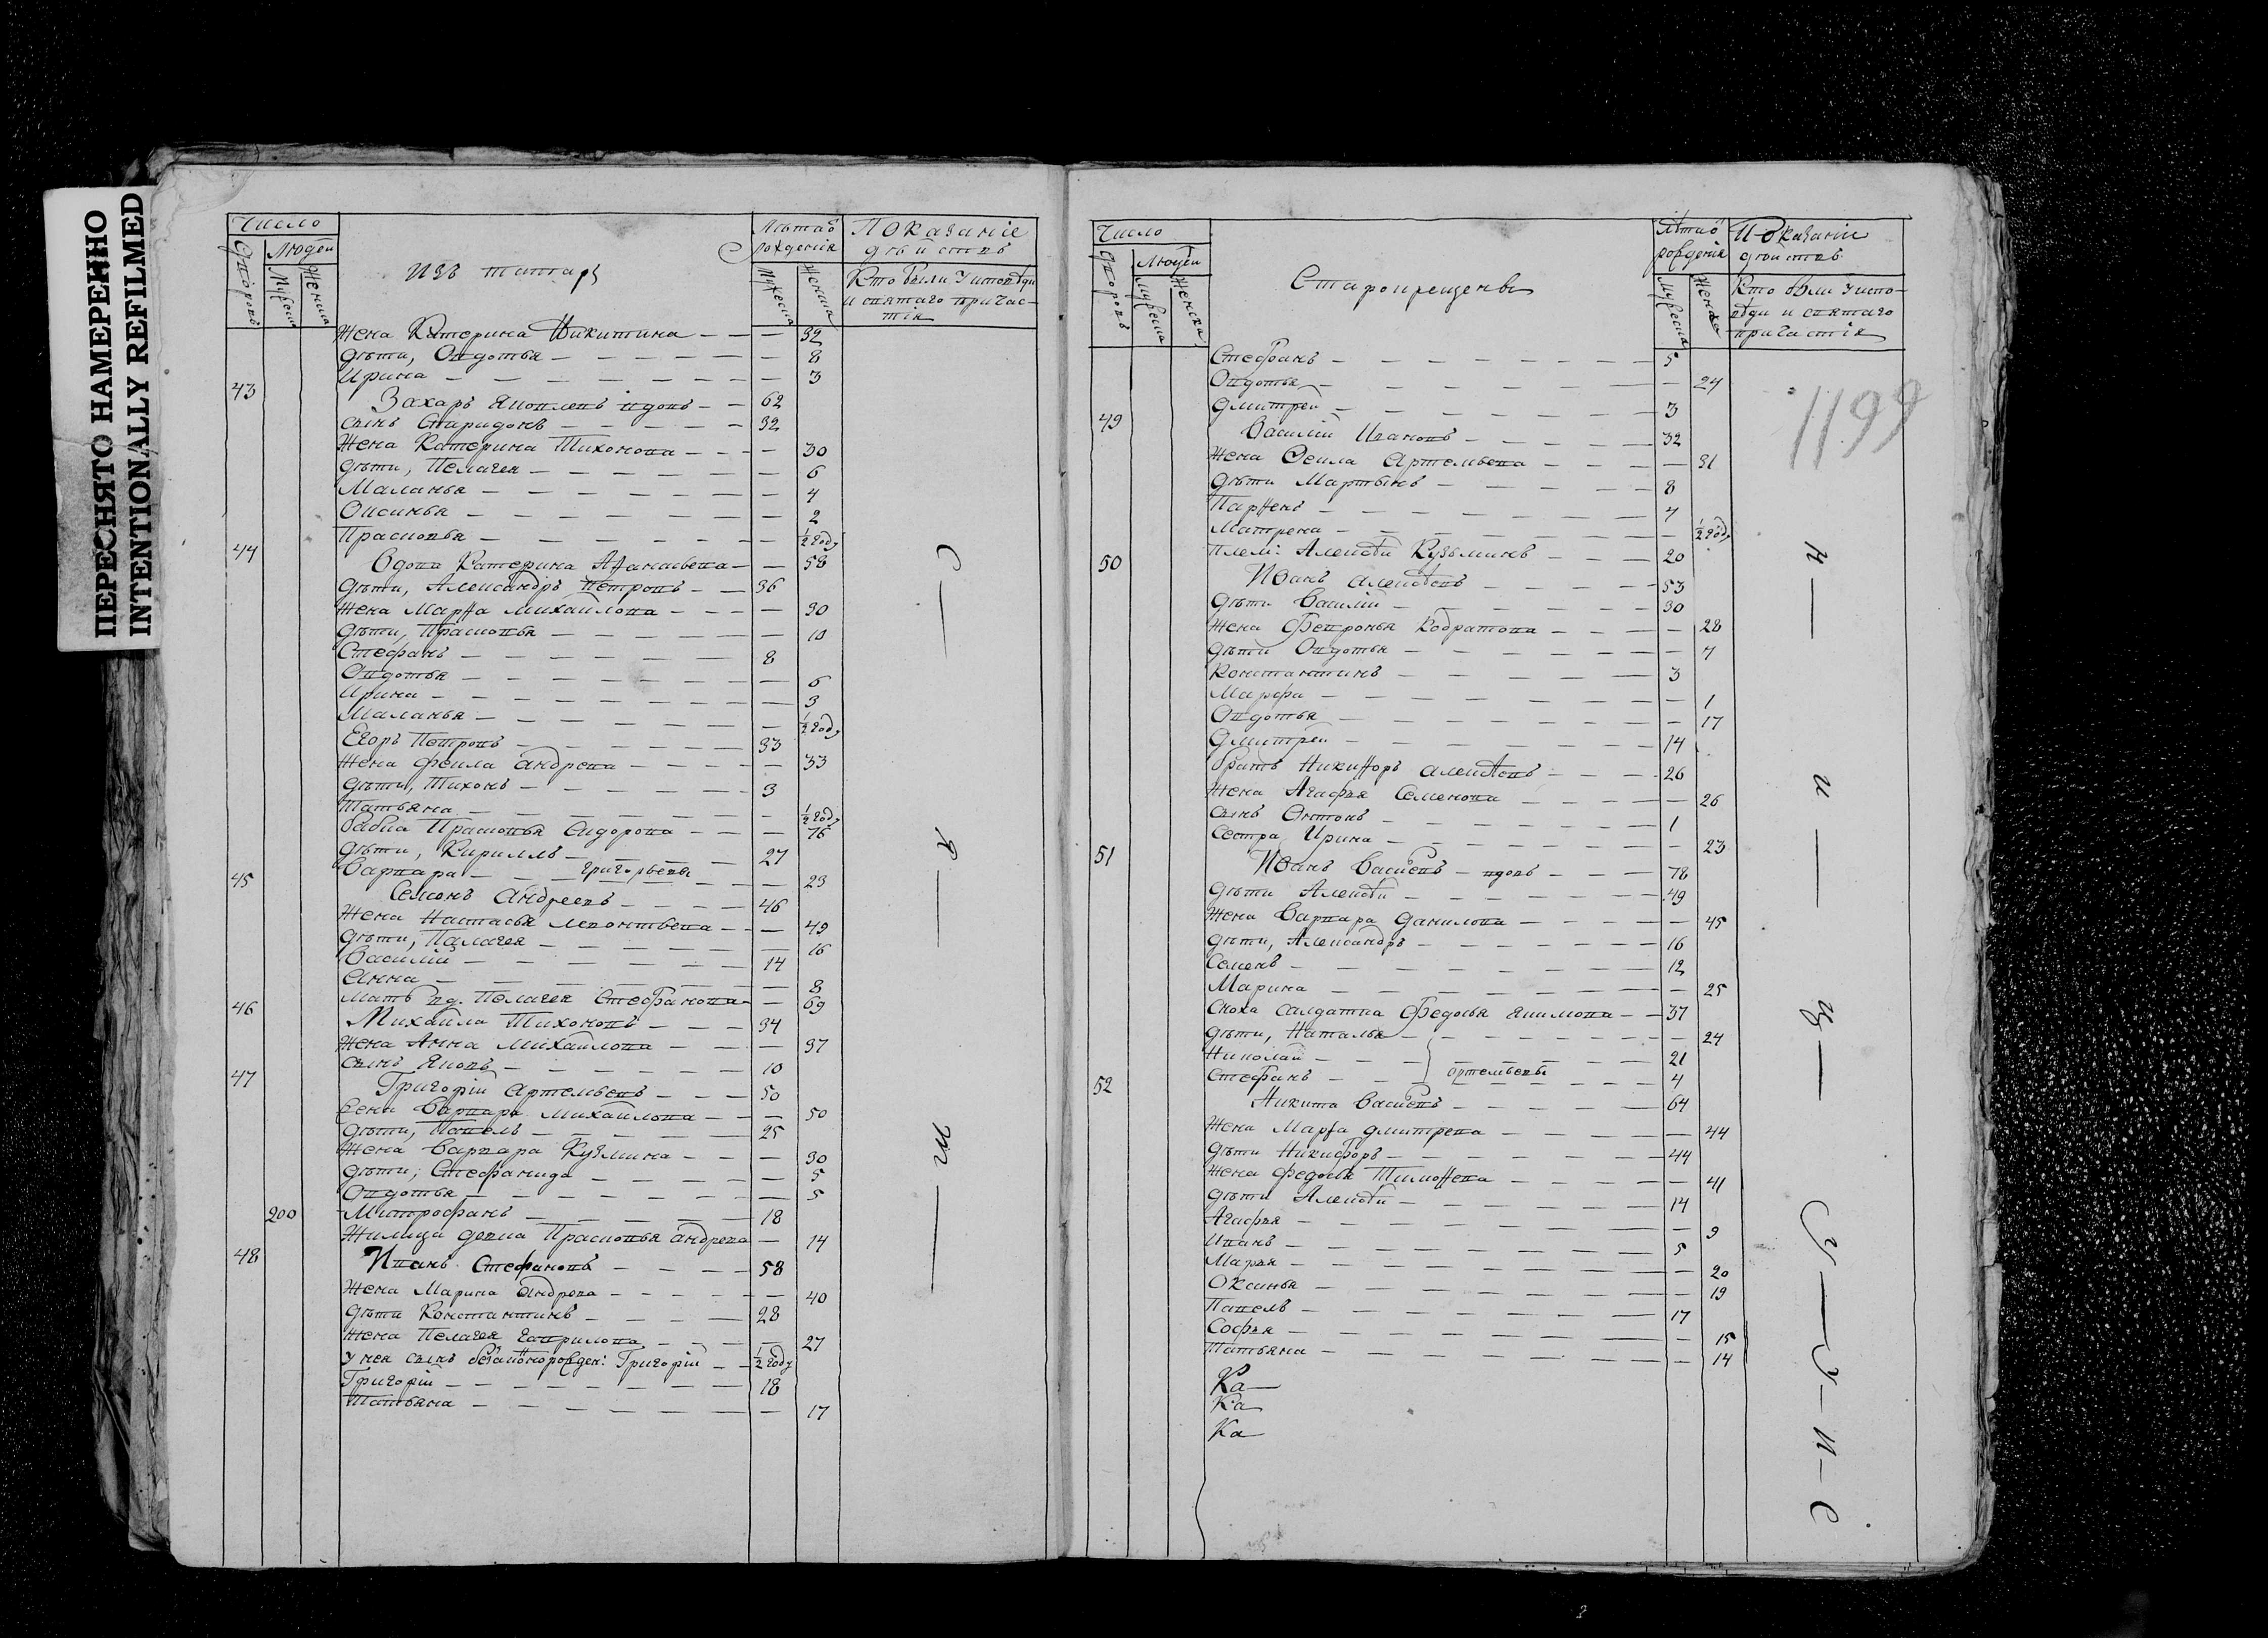 ПЕРЕСНЯТО НАМЕРЕННО
INTENTIONALLY REFILMED
Число
Дворовъ
Людей
Мужеска
Женска
изъ татаръ
Лѣта ѿ рожденія
Мужеска
Женска
Показаніе дѣйствъ
Кто были У исповѣди и святаго причастія
Жена Катерина Никитина — 32
дѣти, Овдотья — 8
Ирина — 3
43 Захаръ Яковлевъ вдовъ — 62
сынъ Спиридонъ — 32
Жена Катерина Тихонова — 30
дѣти, Пелагея — 6
Маланья — 4
Оксинья — 2
Прасковья — ½ году
44 Вдова Катерина Аѳанасьева — 58
дѣти, Александръ Петровъ — 36
Жена Марѳа Михайлова — 30
дѣти, Прасковья — 10
Стефанъ — 8
Овдотья — 6
Ирина — 3
Маланья — ½ году
Егоръ Петровъ — 33
Жена Фекла Андрева — 33
дѣти, Тихонъ — 3
Татьяна — ½ году
бабка Прасковья Сидорова — 76
дѣти, Кириллъ — 27
Варвара — Григорьевы — 23
45 Семенъ Андреевъ — 46
Жена Настасья Леонтьева — 49
дѣти, Палагея — 16
Василій — 14
Анна — 8
Мать вд. Пелагея Стефанова — 69
46 Михайла Тихоновъ — 34
Жена Анна Михайлова — 37
сынъ Яковъ — 10
47 Григорій Артемьевъ — 50
Жена Варвара Михайлова — 50
дѣти, Павелъ — 25
Жена Варвара Кузмина — 30
дѣти, Стефанида — 5
Овдотья — 5
200 Митрофанъ — 18
Жилица девка Прасковья Андрева — 14
48 Иванъ Стефановъ — 58
Жена Марина Андрева — 40
дѣти Константинъ — 28
Жена Пелагея Гаврилова — 27
У нея сынъ Григорій — ½ году
Григорій — 18
Татьяна — 17
С — я — т —
Число
Дворовъ
Людей
Мужеска
Женска
Старокрещены
Лѣта ѿ рожденія
Мужеска
Женска
Показаніе дѣйствъ
Кто были У исповѣди и святаго причастія
1199
Стефанъ — 5
Овдотья — 24
Дмитрей — 3
49 Василій Ивановъ — 32
Жена Ѳекла Артемьева — 31
дѣти Мартынъ — 8
Парѳенъ — 4
Матрена — ½ году
плем: Алексѣй Кузьминъ — 20
50 Иванъ Алексѣевъ — 53
дѣти Василій — 30
Жена Февронья Кодратова — 28
дѣти Овдотья — 4
Константинъ — 3
Марфа — 1
Овдотья — 17
Дмитрей — 14
братъ Никиѳоръ Алексѣевъ — 26
Жена Агафья Семенова — 26
сынъ Онтонъ — 1
сестра, Ирина — 23
51 Иванъ Васильевъ — вдовъ — 78
дѣти Алексѣй — 49
Жена Варвара Данилова — 45
дѣти, Александръ — 16
Семенъ — 12
Марина — 25
Сноха салдатка Федосья Якимова — 37
дѣти, Наталья — 24
Николай — 21
Стефанъ — Ортемьевы — 4
52 Никита Васильевъ — 64
Жена Марѳа Дмитрева — 44
дѣти Никифоръ — 44
Жена Федосья Тимоѳева — 41
дѣти Алексѣй — 14
Агафья — 9
Иванъ — 5
Марья — 20
Оксинья — 19
Павелъ — 17
Софья — 15
Татьяна — 14
Ка
Ка
Ка